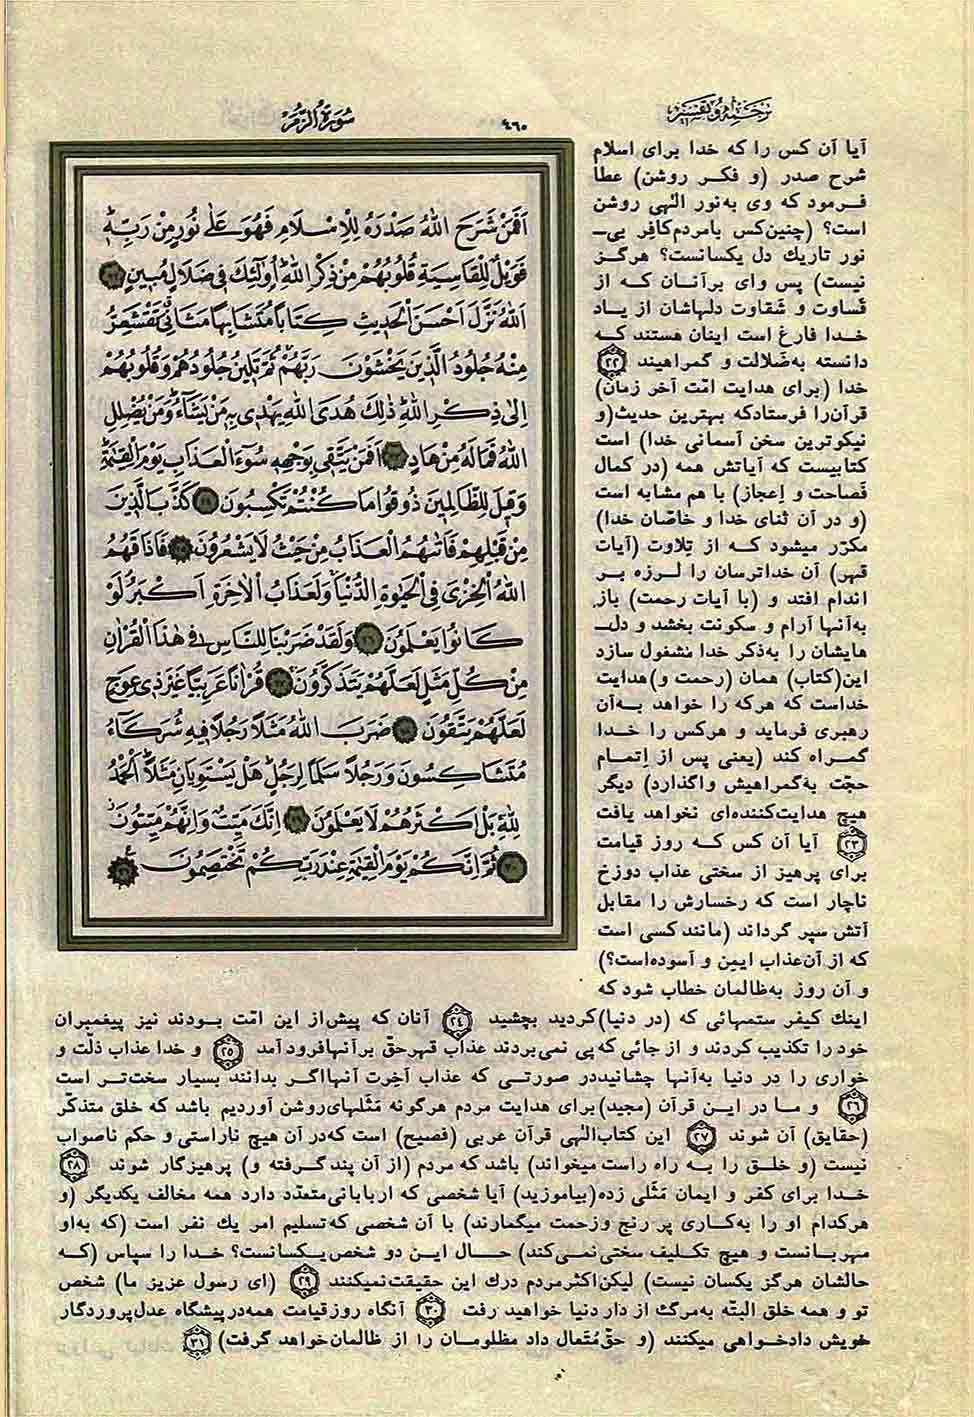 ترجمه و تفسیر
٤٦٠
سورة الزمر
اَفَمَنْ شَرَحَ اللّٰهُ صَدْرَهُ لِلْاِسْلَامِ فَهُوَ عَلٰى نُورٍ مِنْ رَبِّهِ
فَوَيْلٌ لِلْقَاسِيَةِ قُلُوبُهُمْ مِنْ ذِكْرِ اللّٰهِ اُولٰئِكَ فِى ضَلَالٍ مُبِينٍ ٢٢
اَللّٰهُ نَزَّلَ اَحْسَنَ الْحَدِيثِ كِتَابًا مُتَشَابِهًا مَثَانِىَ تَقْشَعِرُّ
مِنْهُ جُلُودُ الَّذِينَ يَخْشَوْنَ رَبَّهُمْ ثُمَّ تَلِينُ جُلُودُهُمْ وَقُلُوبُهُمْ
اِلٰى ذِكْرِ اللّٰهِ ذٰلِكَ هُدَى اللّٰهِ يَهْدِى بِهِ مَنْ يَشَاءُ وَمَنْ يُضْلِلِ
اللّٰهُ فَمَا لَهُ مِنْ هَادٍ ٢٣ اَفَمَنْ يَتَّقِى بِوَجْهِهِ سُوءَ الْعَذَابِ يَوْمَ الْقِيٰمَةِ
وَقِيلَ لِلظَّالِمِينَ ذُوقُوا مَا كُنْتُمْ تَكْسِبُونَ ٢٤ كَذَّبَ الَّذِينَ
مِنْ قَبْلِهِمْ فَاَتٰهُمُ الْعَذَابُ مِنْ حَيْثُ لَا يَشْعُرُونَ ٢٥ فَاَذَاقَهُمُ
اللّٰهُ الْخِزْىَ فِى الْحَيٰوةِ الدُّنْيَا وَلَعَذَابُ الْاٰخِرَةِ اَكْبَرُ لَوْ
كَانُوا يَعْلَمُونَ ٢٦ وَلَقَدْ ضَرَبْنَا لِلنَّاسِ فِى هٰذَا الْقُرْاٰنِ
مِنْ كُلِّ مَثَلٍ لَعَلَّهُمْ يَتَذَكَّرُونَ ٢٧ قُرْاٰنًا عَرَبِيًّا غَيْرَ ذِى عِوَجٍ
لَعَلَّهُمْ يَتَّقُونَ ٢٨ ضَرَبَ اللّٰهُ مَثَلًا رَجُلًا فِيهِ شُرَكَاءُ
مُتَشَاكِسُونَ وَرَجُلًا سَلَمًا لِرَجُلٍ هَلْ يَسْتَوِيَانِ مَثَلًا اَلْحَمْدُ
لِلّٰهِ بَلْ اَكْثَرُهُمْ لَا يَعْلَمُونَ ٢٩ اِنَّكَ مَيِّتٌ وَاِنَّهُمْ مَيِّتُونَ
٣٠ ثُمَّ اِنَّكُمْ يَوْمَ الْقِيٰمَةِ عِنْدَ رَبِّكُمْ تَخْتَصِمُونَ ٣١
آیا آن کس را که خدا برای اسلام
شرح صدر (و فکر روشن) عطا
فرمود که وی به‌نور الٰهی روشن
است؟ (چنین‌کس بامردم‌کافِرِ بی‌ـ
نور تاریك دل یکسانست؟ هرگز
نیست) پس وای برآنان که از
قَساوت و شَقاوت دلهاشان از یاد
خدا فارغ است اینان هستند که
دانسته به‌ضَلالت و گمراهیند ٢٢
خدا (برای هدایت امّت آخر زمان)
قرآن‌را فرستادکه بهترین حدیث(و
نیکوترین سخن آسمانی خدا) است
کتابیست که آیاتش همه (در کمال
فَصاحت و اِعجاز) با هم مشابه است
(و در آن ثنای خدا و خاصّان خدا)
مکرّر میشود که از تِلاوت (آیات
قهر) آن خداترسان را لرزه بر
اندام افتد و (با آیات رحمت) باز
به‌آنها آرام و سکونت بخشد و دل‌ـ
هایشان را به‌ذکر خدا مشغول سازد
این(کتاب) همان (رحمت و)هدایت
خداست که هرکه را خواهد به‌آن
رهبری فرماید و هرکس را خدا
گمراه کند (یعنی پس از اِتمام
حجّت به‌گمراهیش واگذارد) دیگر
هیچ هدایت‌کننده‌ای نخواهد یافت
٢٣ آیا آن کس که روز قیامت
برای پرهیز از سختی عذاب دوزخ
ناچار است که رخسارش را مقابل
آتش سپر گرداند (مانند کسی است
که از آن‌عذاب ایمن و آسوده‌است؟)
و آن روز به‌ظالمان خطاب شود که
اینك کیفر ستمهائی که (در دنیا)کردید بچشید ٢٤ آنان که پیش‌از این امّت بودند نیز پیغمبران
خود را تکذیب کردند و از جائی که‌پی نمی‌بردند عذاب قهرحقّ برآنهافرود آمد ٢٥ و خدا عذاب ذلّت و
خواری را در دنیا به‌آنها چشانیددر صورتی که عذاب آخِرت آنهااگر بدانند بسیار سخت‌تر است
٢٦ و ما در این قرآن (مجید)برای هدایت مردم هرگونه مَثَلهای‌روشن آوردیم باشد که خلق متذکّر
(حقایق) آن شوند ٢٧ این کتاب‌الٰهی قرآن عربی (فصیح) است که‌در آن هیچ ناراستی و حکم ناصواب
نیست (و خلق را به راه راست میخواند) باشد که مردم (از آن پند گرفته و) پرهیزگار شوند ٢٨
خدا برای کفر و ایمان مَثَلی زده(بیاموزید) آیا شخصی که اربابانی‌متعدّد دارد همه مخالف یکدیگر (و
هرکدام او را به‌کاری پر رنج وزحمت میگمارند) با آن شخصی که‌تسلیم امر یك نفر است (که به‌او
مهربانست و هیچ تکلیف سختی‌نمی‌کند) حال این دو شخص‌یکسانست؟ خدا را سپاس (که
حالشان هرگز یکسان نیست) لیکن‌اکثرمردم درك این حقیقت‌نمیکنند ٢٩ (ای رسول عزیز ما) شخص
تو و همه خلق البتّه به‌مرگ از دار دنیا خواهید رفت ٣٠ آنگاه روزقیامت همه‌درپیشگاه عدل‌پروردگار
خویش دادخواهی میکنند (و حقّ‌مُتَعال داد مظلومان را از ظالمان‌خواهد گرفت) ٣١